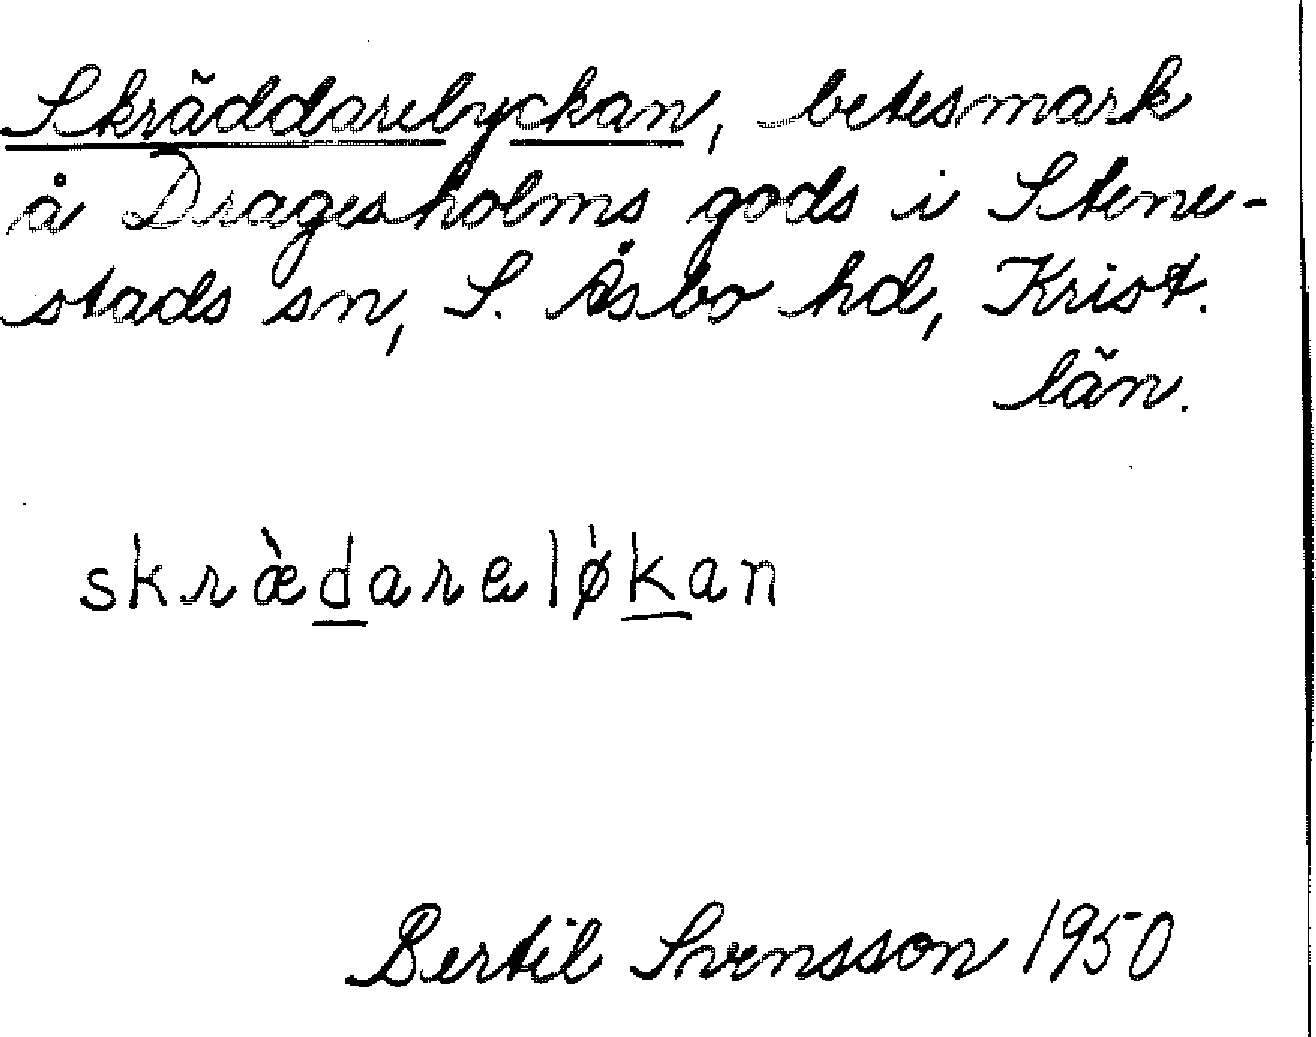 Skräddarelyckan, betesmark
å Dragesholms gods i Stene-
stads sn, S. Åsbo hd, Krist.
län.
skræ̀d̲areløk̲an
Bertil Svensson 1950